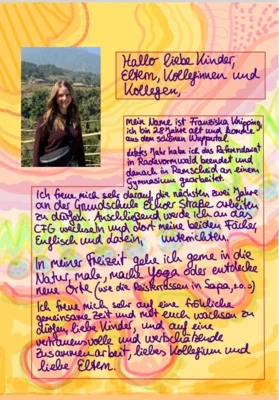 Hallo liebe Kinder,
Eltern, Kolleginnen und
Kollegen,
mein Name ist Franziska Knipping,
ich bin 28 Jahre alt und komme
aus dem schönen Wuppertal.
Letztes Jahr habe ich das Referendariat
in Radevormwald beendet und
danach in Remscheid an einem
Gymnasium gearbeitet.
Ich freue mich sehr darauf, die nächsten zwei Jahre
an der Grundschule Straße arbeiten
zu dürfen. Anschließend werde ich an das
CFG wechseln und dort meine beiden Fächer,
Englisch und Latein, unterrichten.
In meiner Freizeit gehe ich gerne in die
Natur, male, mache Yoga oder entdecke
neue Orte (wie die Reisterrassen in Sapa, s.o.)
Ich freue mich sehr auf eine fröhliche
gemeinsame Zeit und mit euch wachsen zu
dürfen, liebe Kinder, und auf eine
vertrauensvolle und wertschätzende
Zusammenarbeit, liebes Kollegium und
liebe Eltern.